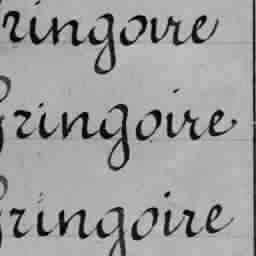 Gringoire
Gringoire
Gringoire